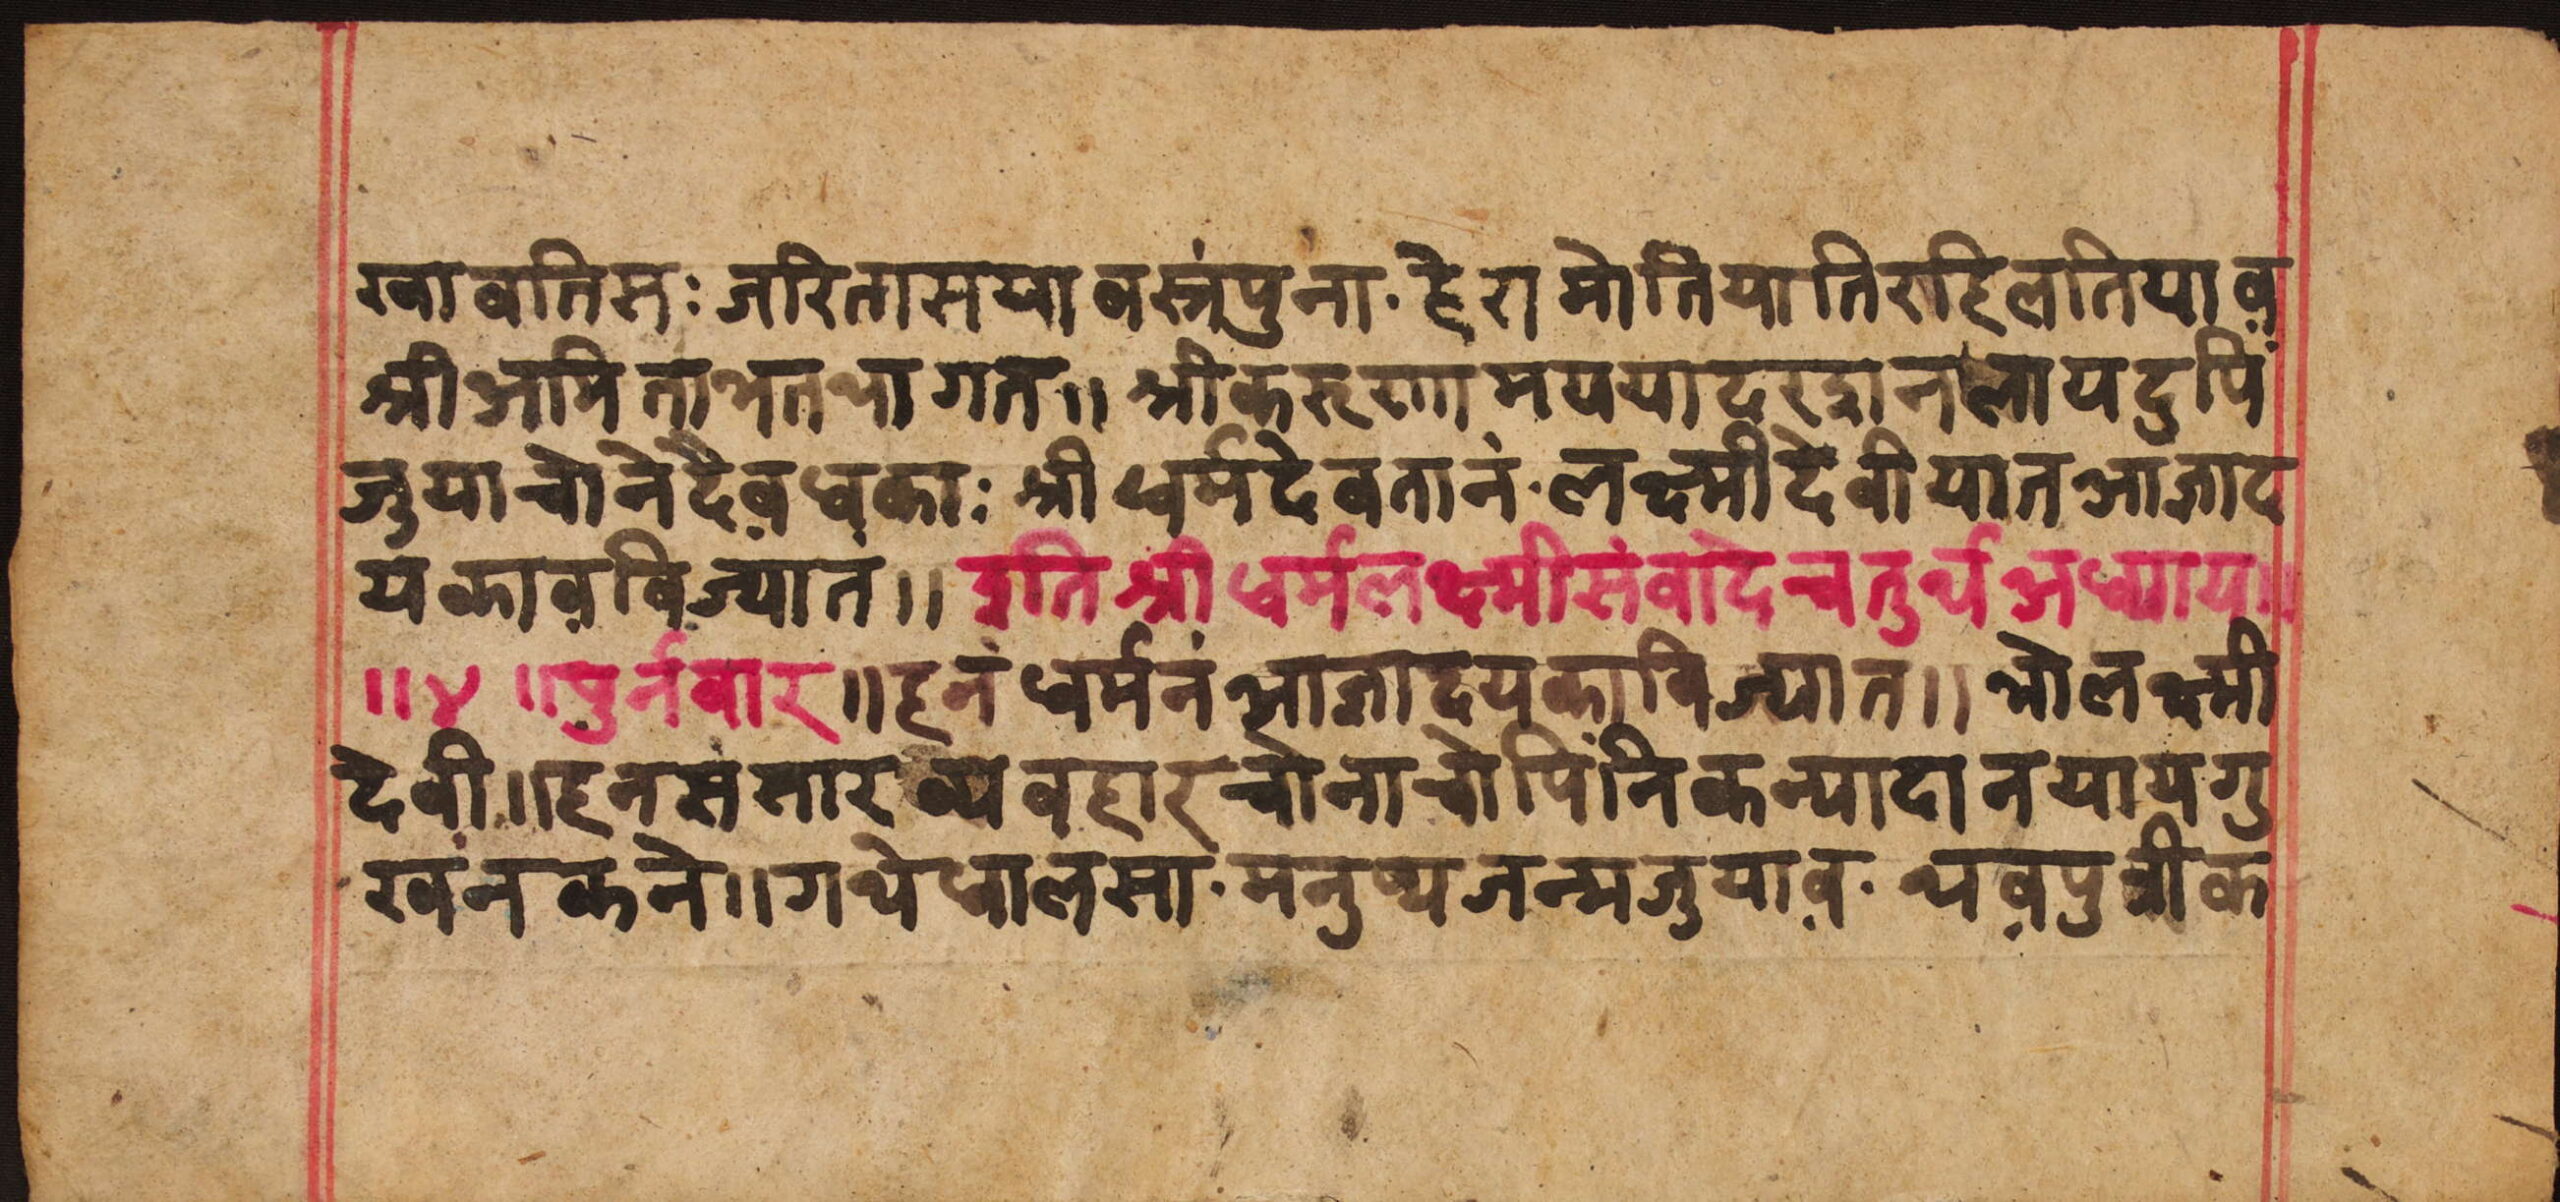 खा वतिसः जरितासया वस्त्रंपुना· हैरा मोतिया तिरहिलतिया व़
श्री अमिताभतथागत॥ श्रीकरूणामययादरदानलायदुपिं
जुयाचोनेदैव़धकाः श्री धर्मदेवतानं· लक्ष्मीदेवीयात आज्ञाद
यकाव़विज्यातं॥ इति श्री धर्मलक्ष्मीसंवादे चतुर्थ अध्याय॥
॥४ ॥पुर्नबार॥ हनं धर्मनं आज्ञादयकाविज्यात॥ भोलक्ष्मी
देवी॥ हनसंसार व्यवहार चोनाचोपिंनि कन्यादानयायगु
खंनकने॥ गथेधालसा· मनुष्य जन्मजुयाव़· थव़पुत्रीक